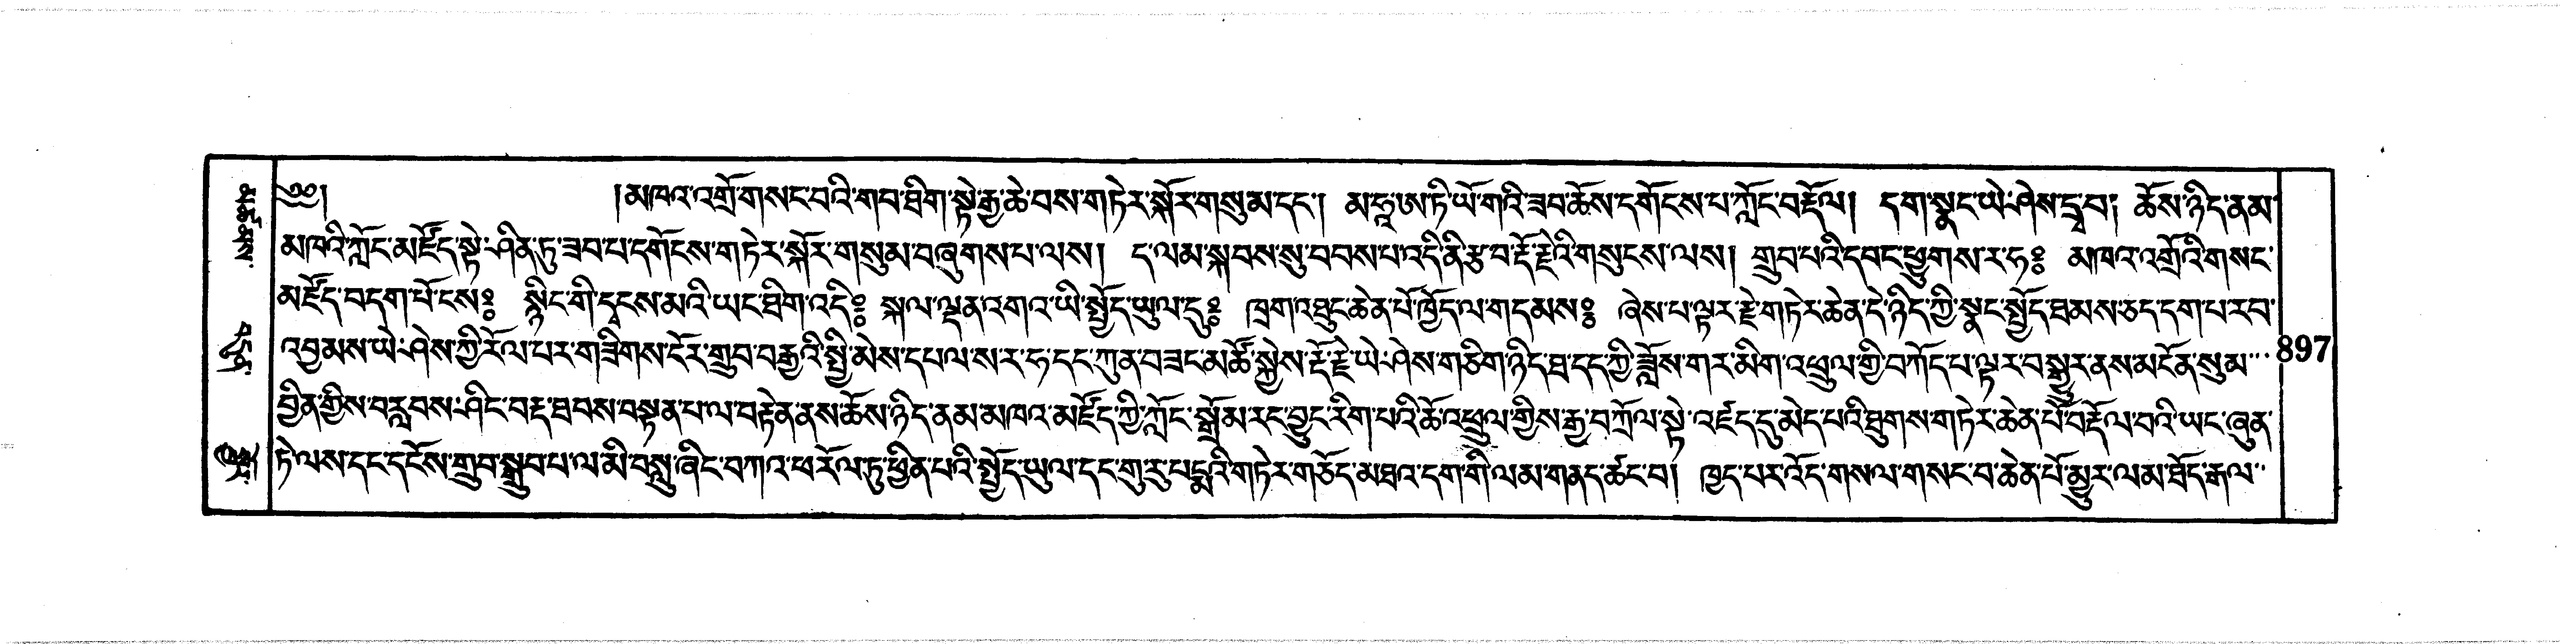 ༄༅། །མཁའ་འགྲོ་གསང་བའི་གབ་ཐིག་སྟེ་རྒྱ་ཆེ་བས་གཏེར་སྐོར་གསུམ་དང་། མ་ཧཱ་ཨ་ཏི་ཡོ་གའི་ཟབ་ཆོས་དགོངས་པ་ཀློང་བརྡོལ། དག་སྣང་ཡེ་ཤེས་དྲྭ་བ། ཆོས་ཉིད་ནམ་
མཁའི་ཀློང་མཛོད་སྟེ་ཤིན་ཏུ་ཟབ་པ་དགོངས་གཏེར་སྐོར་གསུམ་བཞུགས་པ་ལས། ད་ལམ་སྐབས་སུ་བབས་པ་འདི་ནི་རྩ་བ་རྡོ་རྗེའི་གསུངས་ལས། གྲུབ་པའི་དབང་ཕྱུགས་ར་ཧ༔ མཁའ་འགྲོའི་གསང་
མཛོད་བདག་པོ་ངས༔ སྙིང་གི་དྭངས་མའི་ཡང་ཐིག་འདི༔ སྐལ་ལྡན་འགའ་ཡི་སྤྱོད་ཡུལ་དུ༔ ཁྲག་འཐུང་ཆེན་པོ་ཁྱོད་ལ་གདམས༔ ཞེས་པ་ལྟར་རྗེ་གཏེར་ཆེན་དེ་ཉིད་ཀྱི་སྣང་སྤྱོད་ཐམས་ཅད་དག་པ་རབ་
འབྱམས་ཡེ་ཤེས་ཀྱི་རོལ་པར་གཟིགས་ངོར་གྲུབ་བརྒྱའི་སྤྱི་མེས་དཔལ་ས་ར་ཧ་དང་ཀུན་བཟང་མཚོ་སྐྱེས་རྡོ་རྗེ་ཡེ་ཤེས་གཅིག་ཉིད་ཐ་དད་ཀྱི་ཟློས་གར་མིག་འཕྲུལ་གྱི་བཀོད་པ་ལྟར་བསྒྱུར་ནས་མངོན་སུམ་
897
བྱིན་གྱིས་བརླབས་ཤིང་བརྡ་ཐབས་བསྟན་པ་ལ་བརྟེན་ནས་ཆོས་ཉིད་ནམ་མཁའ་མཛོད་ཀྱི་ཀློང་སྒྲོམ་རང་བྱུང་རིག་པའི་ཆོ་འཕྲུལ་གྱིས་རྒྱ་བཀྲོལ་སྟེ་འཛད་དུ་མེད་པའི་ཐུགས་གཏེར་ཆེན་པོ་བརྡོལ་བའི་ཡང་ཞུན་
ཏེ་ལས་དང་དངོས་གྲུབ་སྒྲུབ་པ་ལ་མི་བསླུ་ཞིང་བཀའ་ཕ་རོལ་ཏུ་ཕྱིན་པའི་སྤྱོད་ཡུལ་དང་གུ་རུ་པདྨའི་གཏེར་གཅོད་མཐའ་དག་གི་ལམ་གནད་ཚང་བ། ཁྱད་པར་འོད་གསལ་གསང་བ་ཆེན་པོ་མྱུར་ལམ་ཐོད་རྒལ་